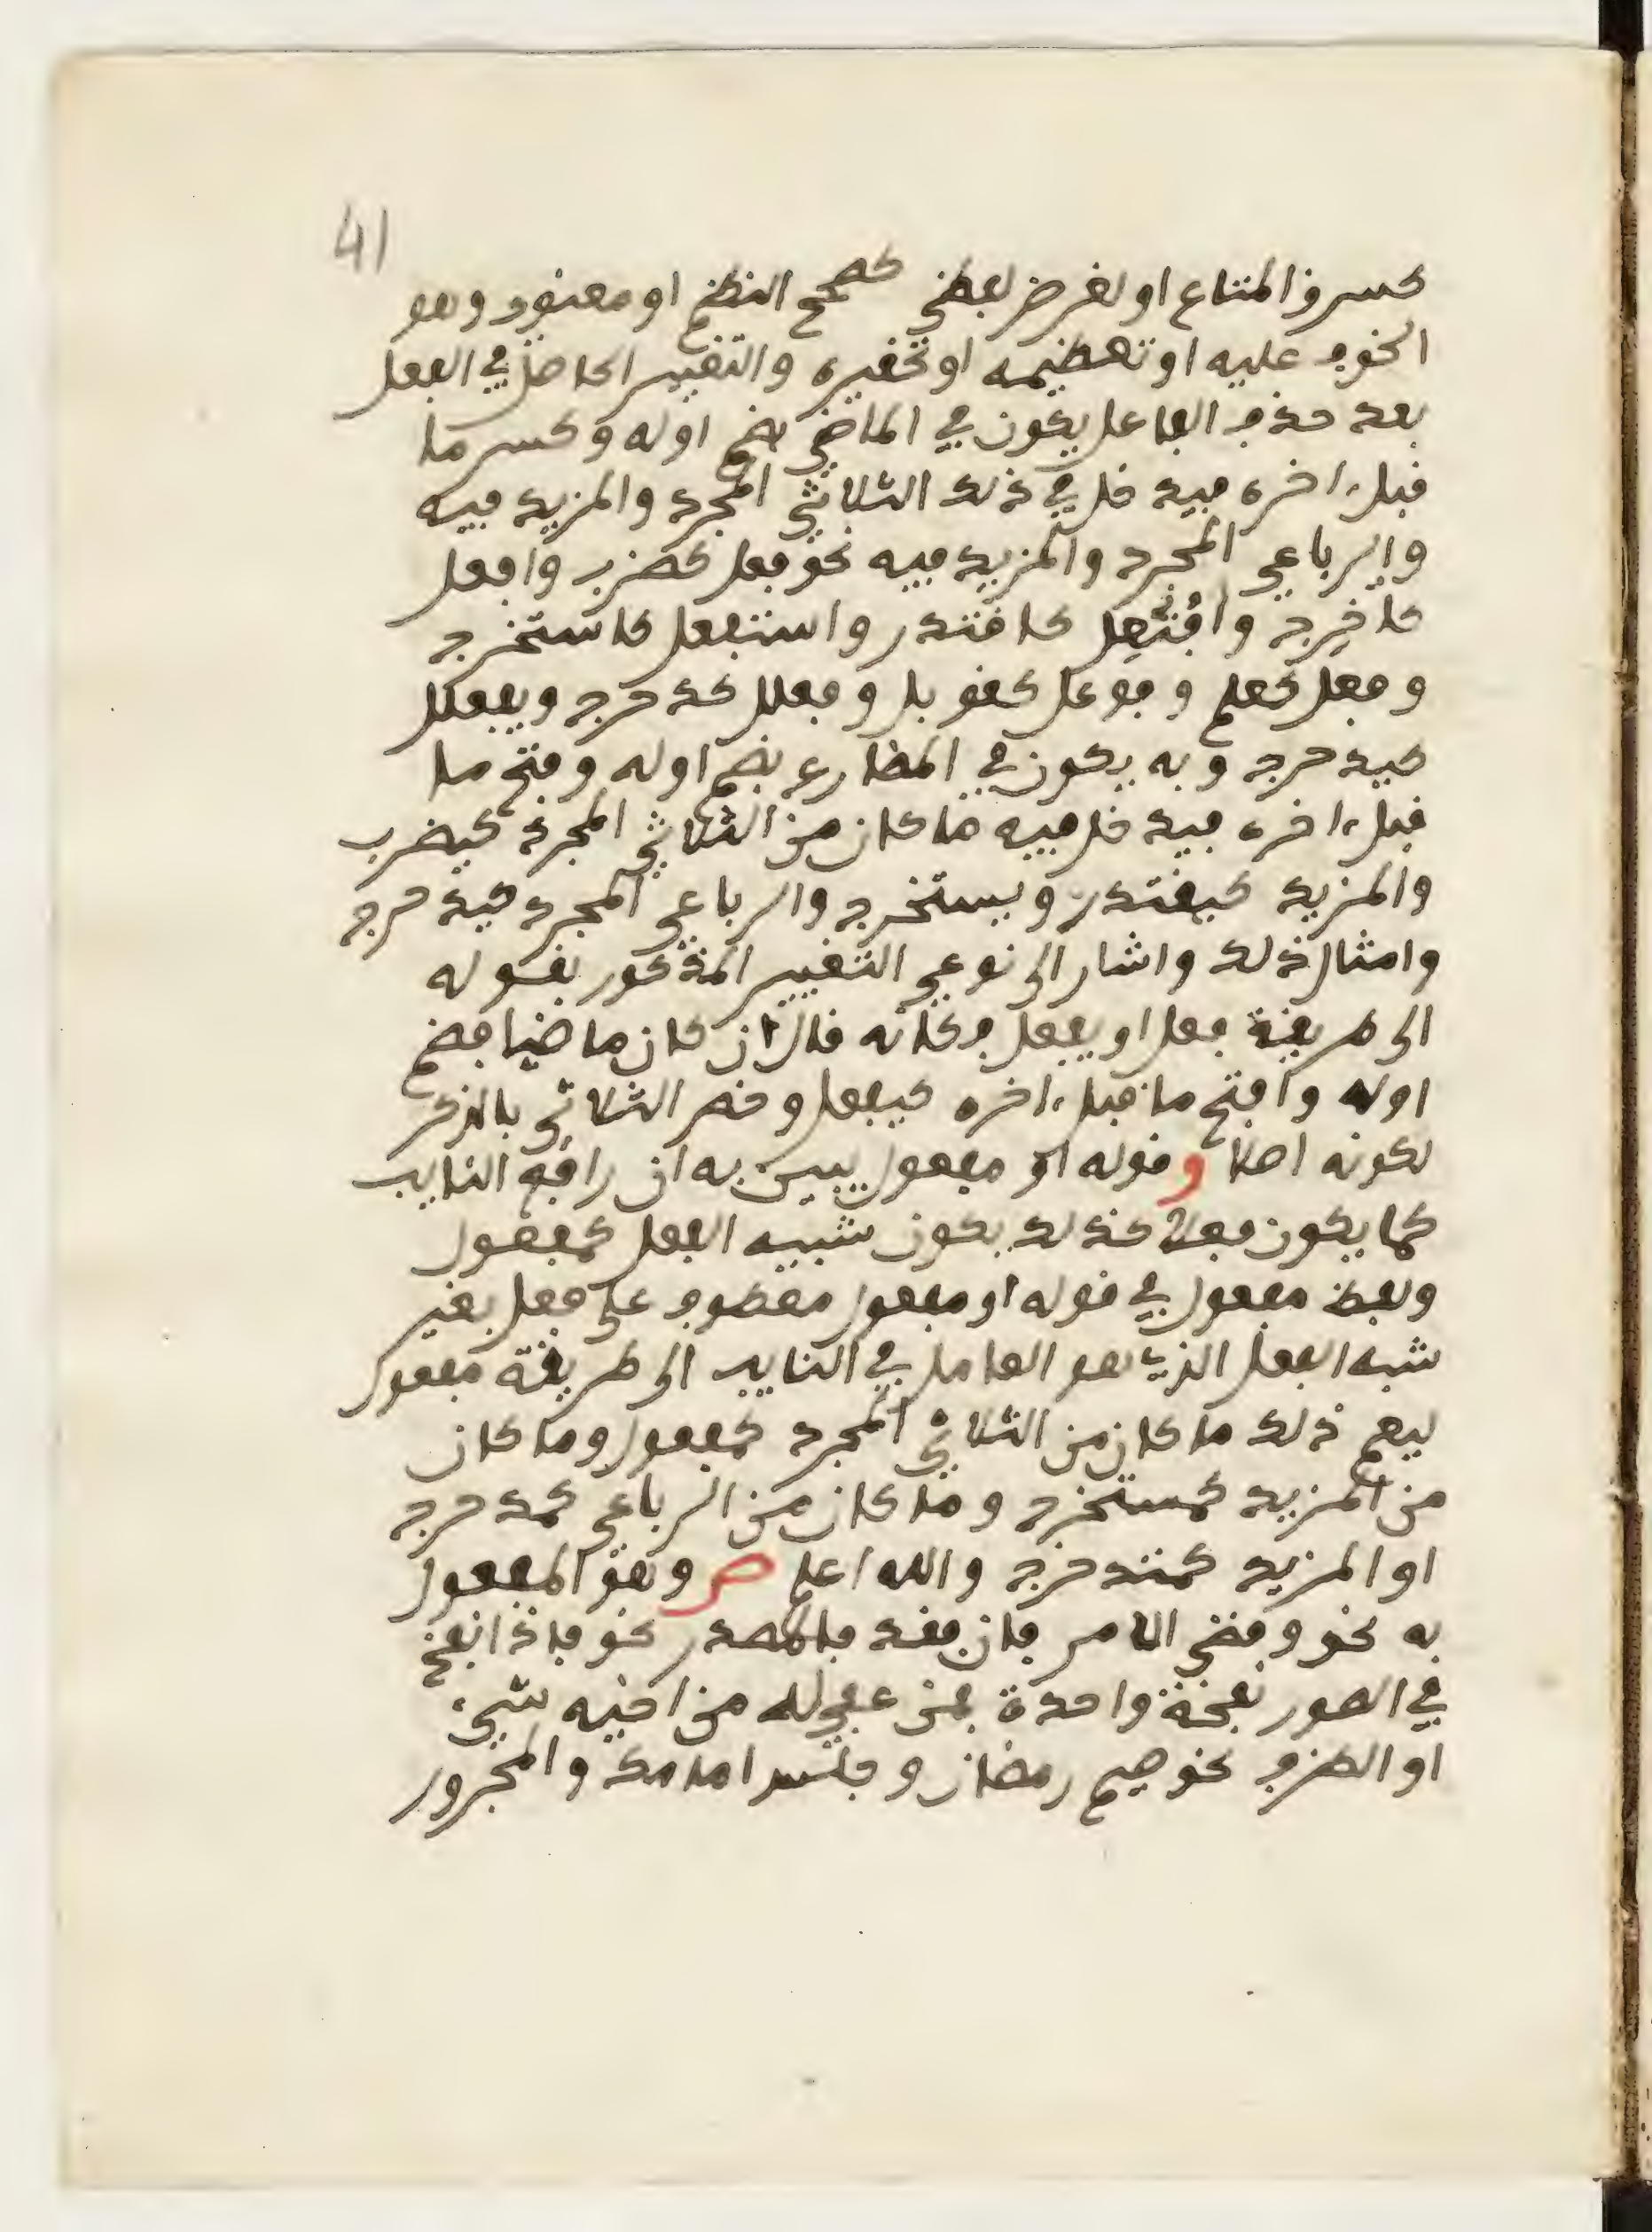 41
كسرق المتاع او لغرض لفظي كصحح النظم او معنوي وهو
الخوف عليه او تعظيمه او تحقيره والتغيير الحاصل في الفعل
بعد حذف الفاعل يكون في الماضي بضم اوله وكسر ما
قبل ءاخره فيدخل في ذلك الثلاثي المجرد والمزيد فيه
والرباعي المجرد والمزيد فيه نحو فعل كضرب وافعل
كاخرج وافتعل كاقتدر واستفعل كاستخرج
وفعل كعلم وفوعل كقوبل وفعلل كدحرج ويفعلل
كيدحرج وبه يكون في المضارع بضم اوله وفتح ما
قبل ءاخره فيدخل فيه ما كان من الثلاثي المجرد كيضرب
والمزيد كيقتدر ويستخرج والرباعي المجرد كيدحرج
وامثال ذلك واشار الى نوعي التغيير المذكور بقوله
الى طريقة فعل او يفعل فكانه قال ان كان ماضيا فضم
اوله وافتح ما قبل ءاخره كيفعل وخص الثلاثي بالذكر
لكونه اصلا وقوله او مفعول يبين به ان رافع النايب
كما يكون فعلا كذلك يكون شبيه الفعل كمفعول
ولفظ مفعول في قوله او مفعول معطوف على فعل بغير
شبه الفعل الذي هو العامل في النايب الى طريقة مفعول
ليعم ذلك ما كان من الثلاثي المجرد كمفعول وما كان
من المزيد كمستخرج وما كان من الرباعي كمدحرج
او المزيد كمتدحرج والله اعلم ص وهو المفعول
به نحو وقضي الامر فان فقد فالمصدر نحو فاذا نفخ
في الصور نفخة واحدة فمن عفي له من اخيه شيء
او الظرف نحو صيم رمضان وجلس امامك والمجرور